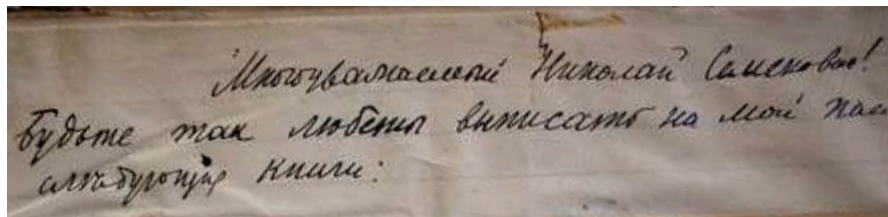 Многоуважаемый Николай Семенович!
Будьте так любезны выписать на мой
следующие книги: